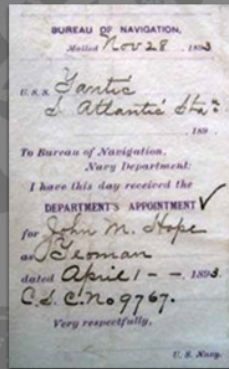 BUREAU OF NAVIGATION,
Mailed Nov 28, 1893
U. S. S. Yantic
S. Atlantic Sta.n
, 189 .
To Bureau of Navigation,
Navy Department:
I have this day received the
DEPARTMENT'S APPOINTMENT ✓
for John M. Hope
as Yeoman
dated April 1 - - , 1893.
C.S.C. No 9767.
Very respectfully,
U. S. Navy.